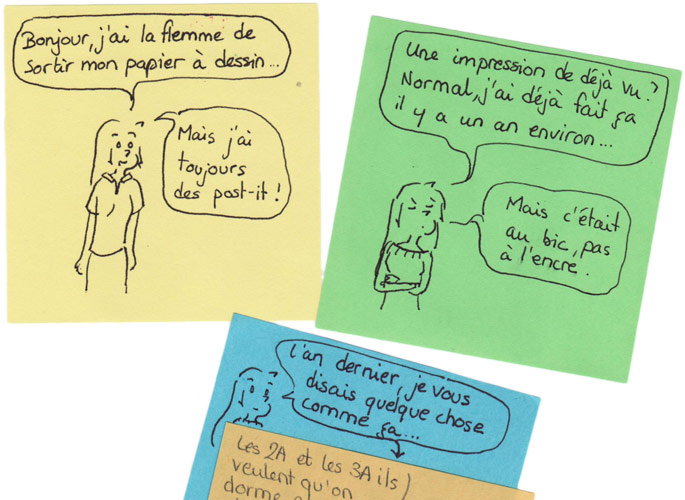 Bonjour, j'ai la flemme de
sortir mon papier à dessin...
Mais j'ai
toujours
des post-it !
Une impression de déjà vu ?
Normal, j'ai déjà fait ça
il y a un an environ...
Mais c'était
au bic, pas
à l'encre.
L'an dernier, je vous
disais quelque chose
comme ça...
Les 2A et les 3A ils
veulent qu'on